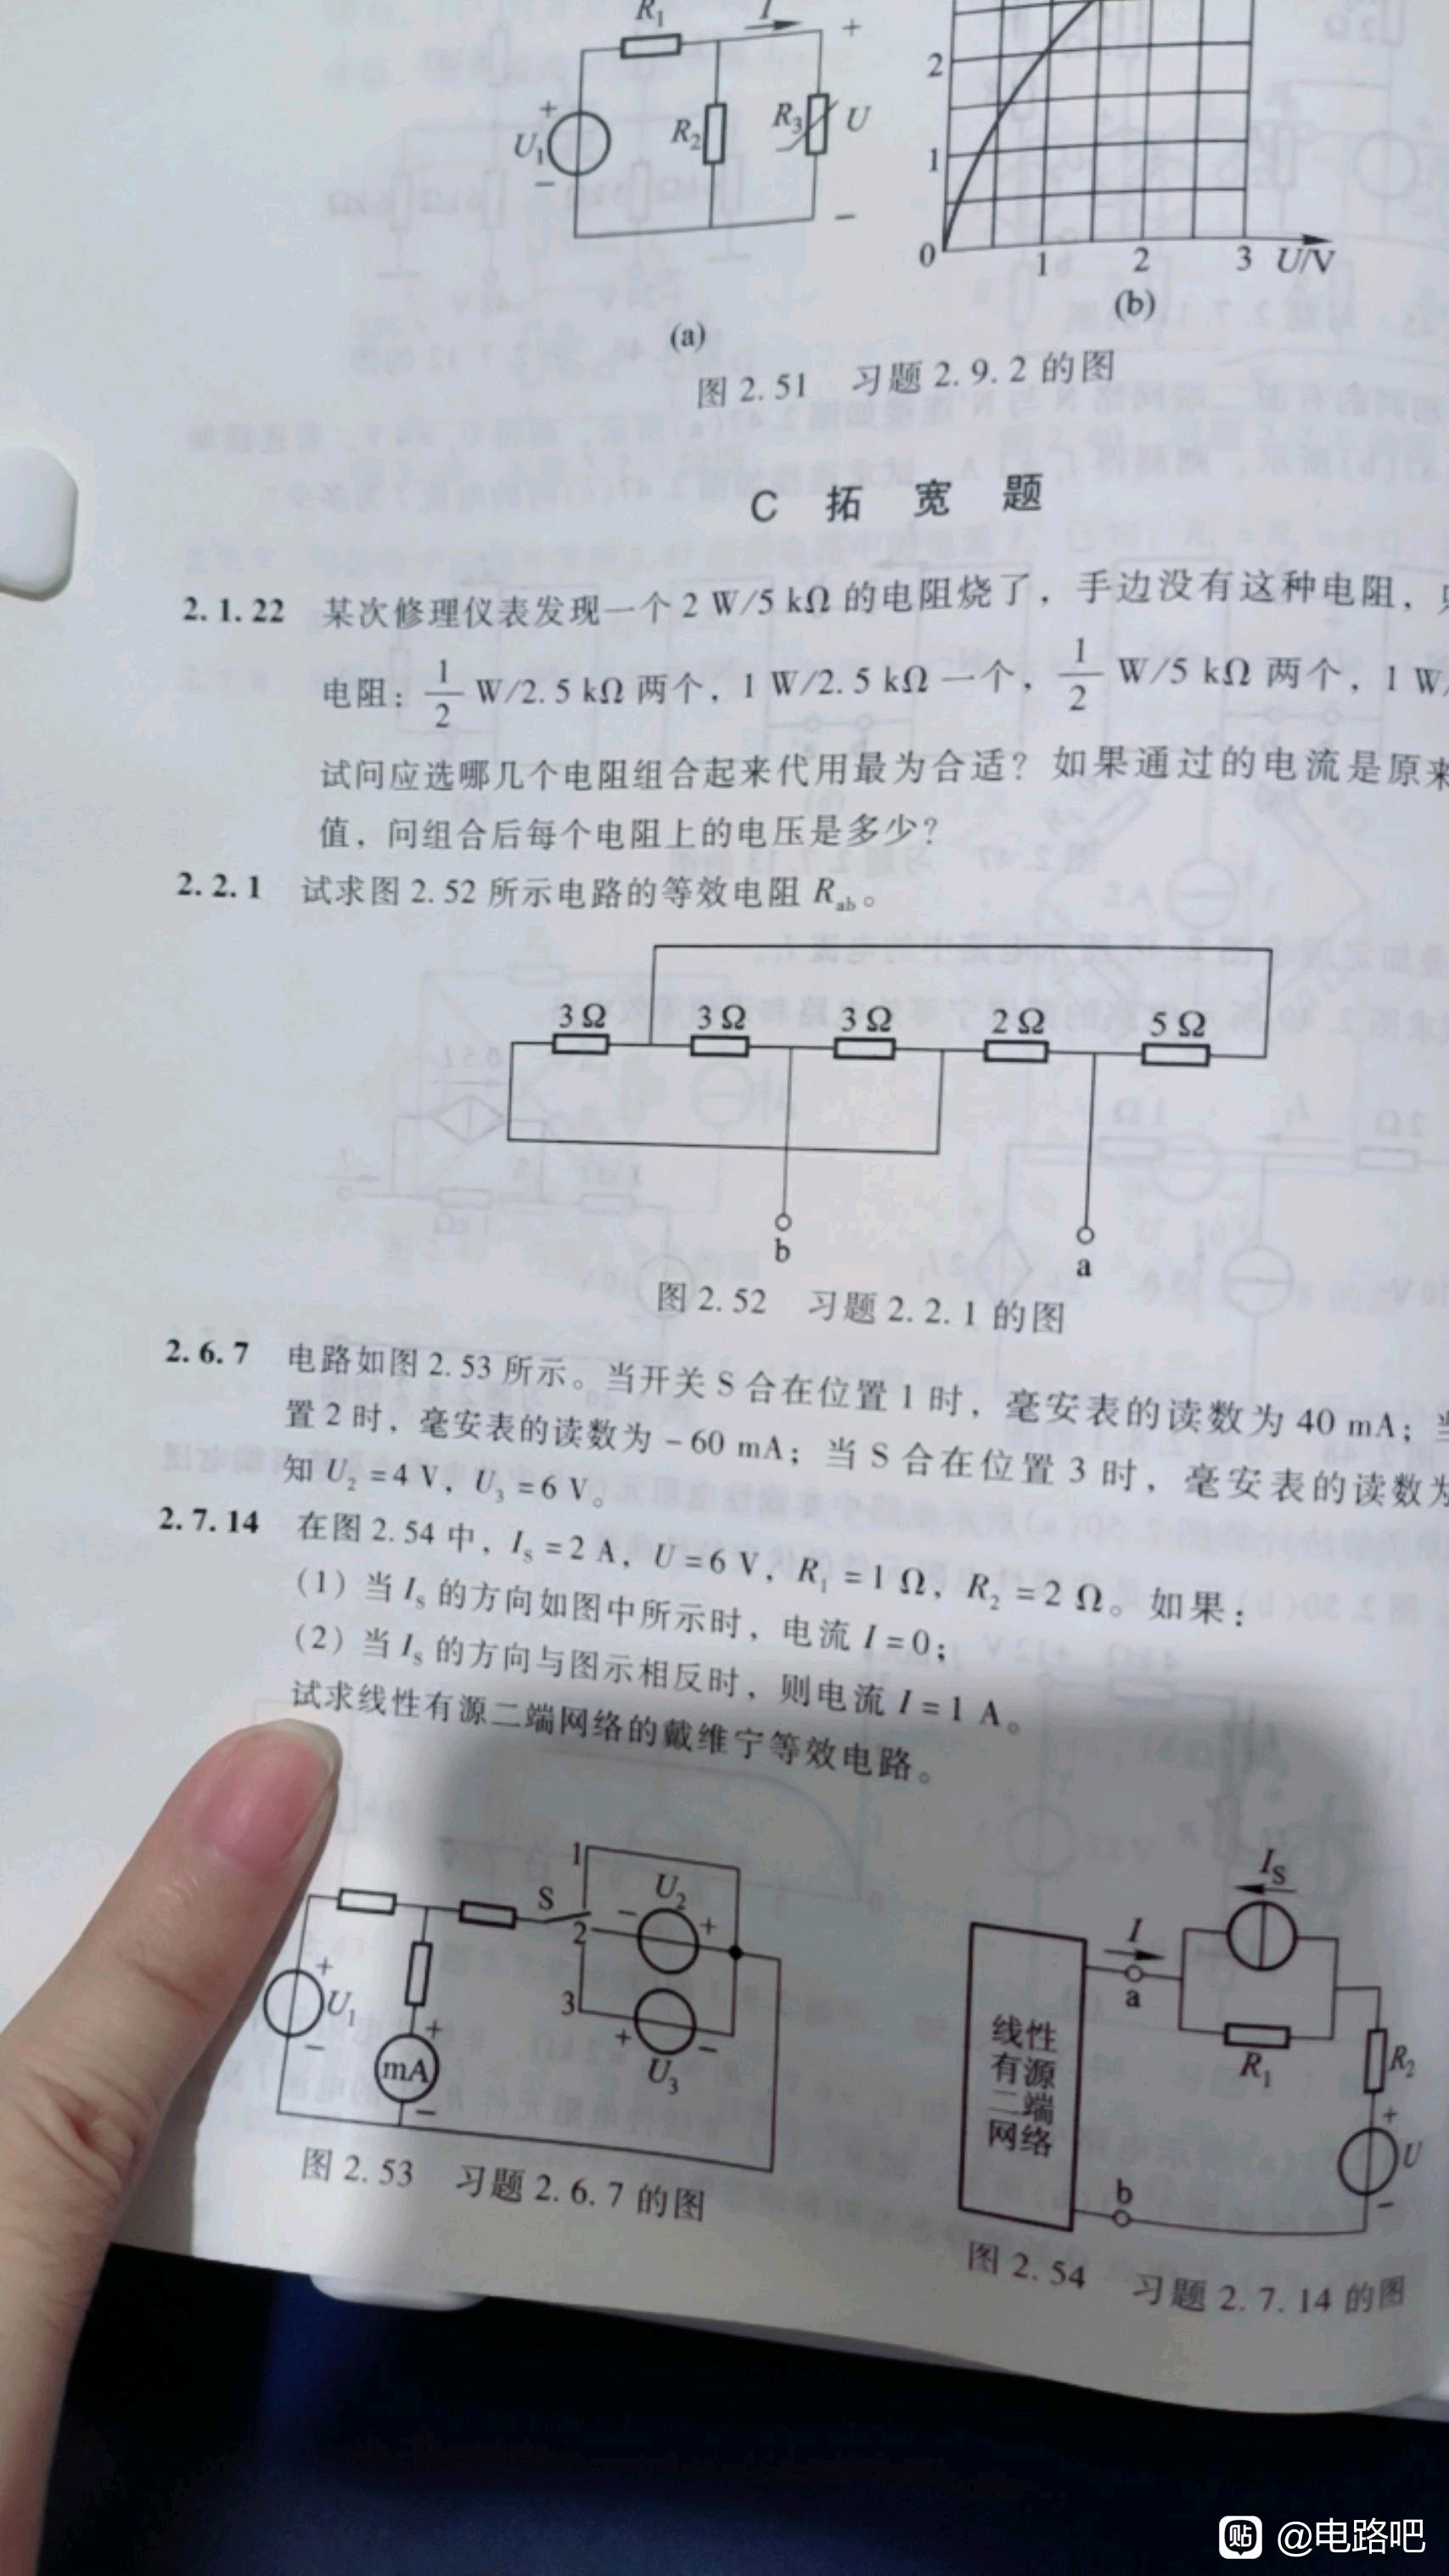 R₁
I
+
U₁
+
−
R₂
R₃
U
−
2
1
0
1
2
3
U/V
(a)
(b)
图 2.51 习题 2.9.2 的图
C 拓 宽 题
2.1.22 某次修理仪表发现一个 2 W/5 kΩ 的电阻烧了，手边没有这种电阻，
电阻：1/2 W/2.5 kΩ 两个，1 W/2.5 kΩ 一个，1/2 W/5 kΩ 两个，1 W/
试问应选哪几个电阻组合起来代用最为合适？如果通过的电流是原来
值，问组合后每个电阻上的电压是多少？
2.2.1 试求图 2.52 所示电路的等效电阻 Rab。
3 Ω
3 Ω
3 Ω
2 Ω
5 Ω
b
a
图 2.52 习题 2.2.1 的图
2.6.7 电路如图 2.53 所示。当开关 S 合在位置 1 时，毫安表的读数为 40 mA；当
置 2 时，毫安表的读数为 −60 mA；当 S 合在位置 3 时，毫安表的读数为
知 U₂ = 4 V，U₃ = 6 V。
2.7.14 在图 2.54 中，Is = 2 A，U = 6 V，R₁ = 1 Ω，R₂ = 2 Ω。如果：
(1) 当 Is 的方向如图中所示时，电流 I = 0；
(2) 当 Is 的方向与图示相反时，则电流 I = 1 A。
试求线性有源二端网络的戴维宁等效电路。
1
S
2
3
− U₂ +
+ U₃ −
+
U₁
−
+
mA
−
图 2.53 习题 2.6.7 的图
Is
I
a
R₁
R₂
+
U
−
b
线性
有源
二端
网络
图 2.54 习题 2.7.14 的图
贴 @电路吧